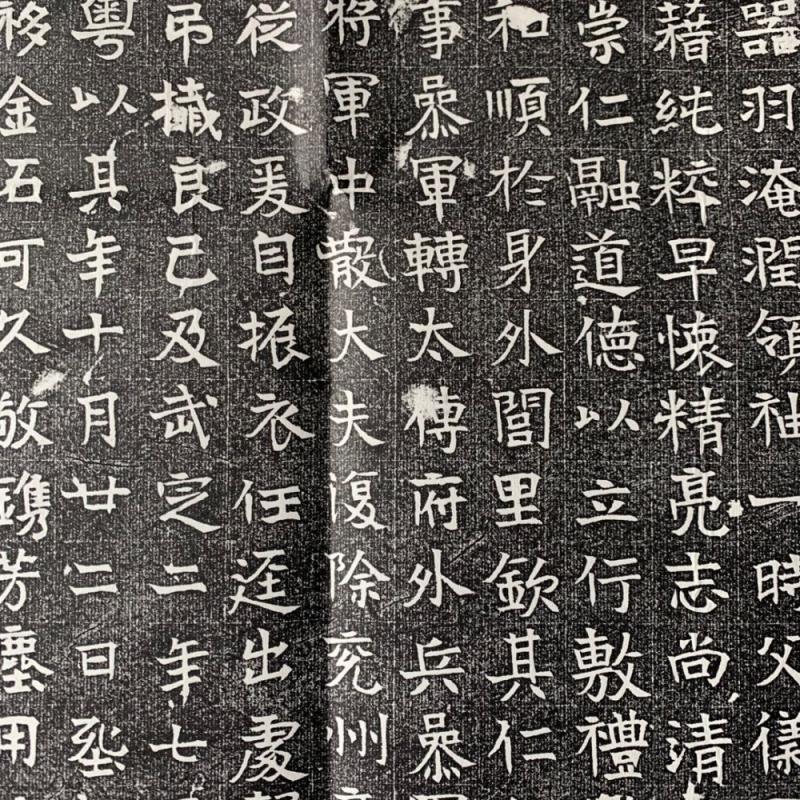 器羽淹潤領袖一時父樣
藉純粹早懷精亮志尚清
崇仁融道德以立行敷禮
和順於身外閭里欽其仁
事叅軍轉太傅府外兵叅
將軍中散大夫復除兖州
従政爰自振衣任逕出處
弔撎良已及武定二年七
粵以其年十月廿二日坙
移金石可久敬鐫芳塵用